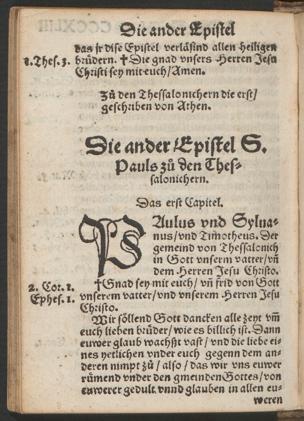 Die ander Epistel
das jr dise Epistel verläsind allen heiligen
1. Thes. 3. brüdern. ✝ Die gnad vnsers Herren Jesu
Christi sey mit euch / Amen.
Zů den Thessalonichern die erst /
geschriben von Athen.
Die ander Epistel S.
Pauls zů den Thes-
salonichern.
Das erst Capitel.
PAulus vnd Sylua-
nus / vnd Timotheus. Der
gemeind von Thessalonich
in Gott vnserm vatter / vñ
dem Herren Jesu Christo.
2. Cor. 1. ✝ Gnad sey mit euch / vñ frid von Gott
Ephes. 1. vnserem vatter / vnd vnserem Herren Jesu
Christo.
Wir söllend Gott dancken alle zeyt vm̃
euch lieben brüder / wie es billich ist. Dann
euwer glaub wachßt vast / vnd die liebe ei-
nes yetlichen vnder euch gegenn dem an-
deren nimpt zů / also / das wir vns euwer
rümend vnder den gmeinden Gottes / von
euwerer gedult vnnd glauben in allen eu-
weren